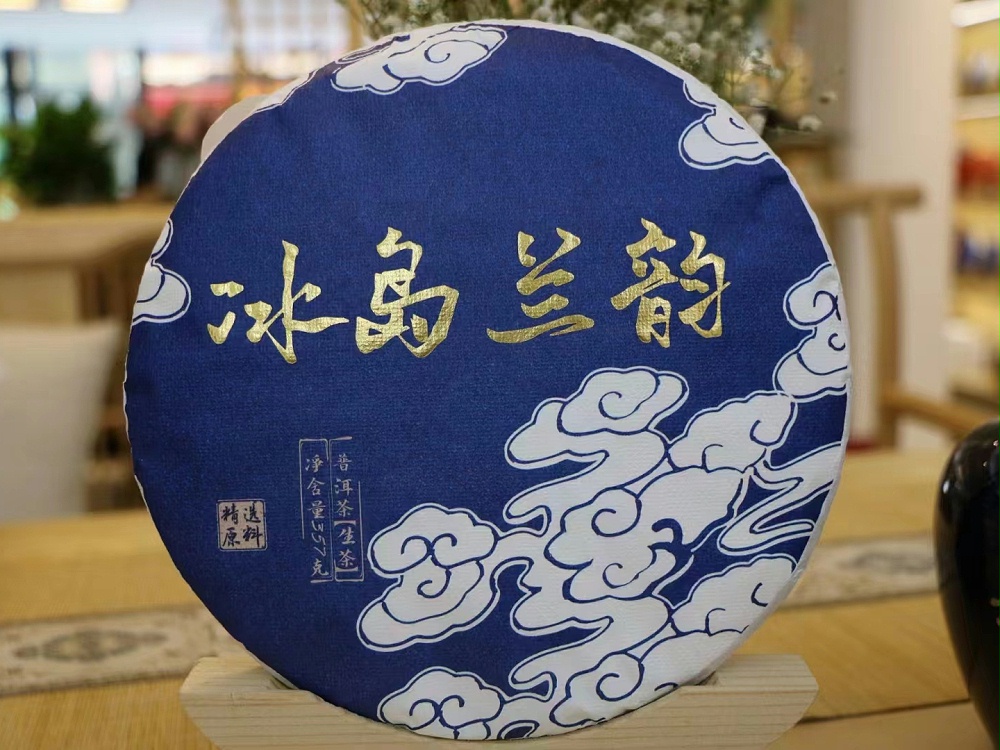 冰岛兰韵
普洱茶【生茶】
净含量357克
精选
原料